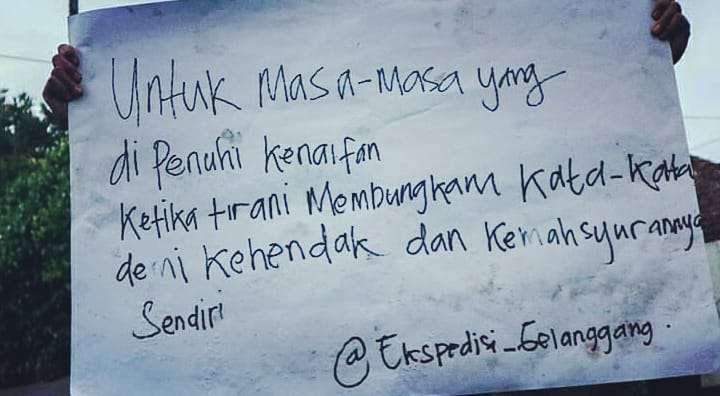 Untuk Masa-Masa yang
di Penuhi Kenaifan
Ketika tirani Membungkam Kata-Kata
demi Kehendak dan Kemahsyurannya
Sendiri
@Ekspedisi_Gelanggang.